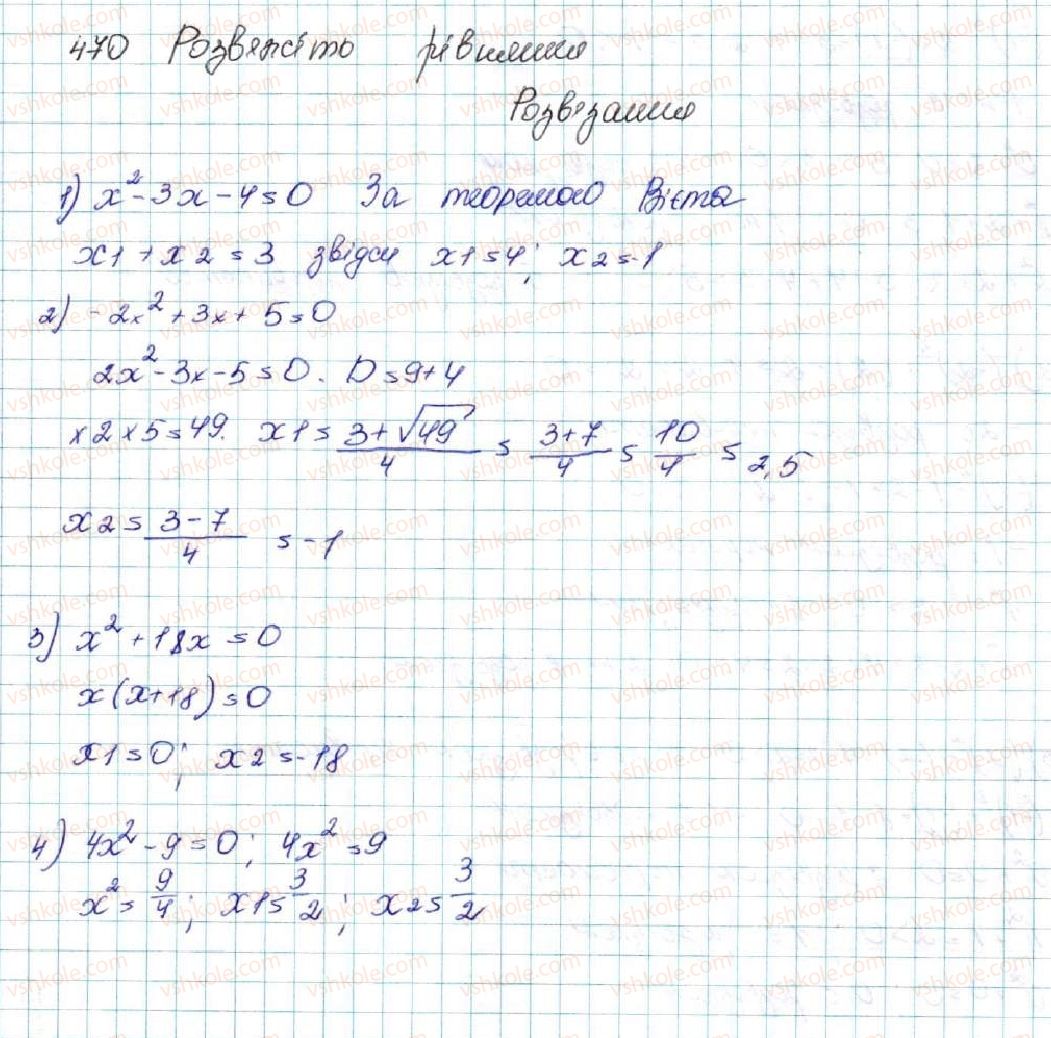 470 Розвяжіть рівняння
Розвязання
1) x² - 3x - 4 = 0 За теоремою Вієта
x1 + x2 = 3 звідси x1 = 4; x2 = -1
2) -2x² + 3x + 5 = 0
2x² - 3x - 5 = 0. D = 9 + 4
×2×5 = 49. x1 = (3+√49)/4 = (3+7)/4 = 10/4 = 2,5
x2 = (3-7)/4 = -1
3) x² + 18x = 0
x(x+18) = 0
x1 = 0; x2 = -18
4) 4x² - 9 = 0; 4x² = 9
x² = 9/4; x1 = 3/2; x2 = 3/2